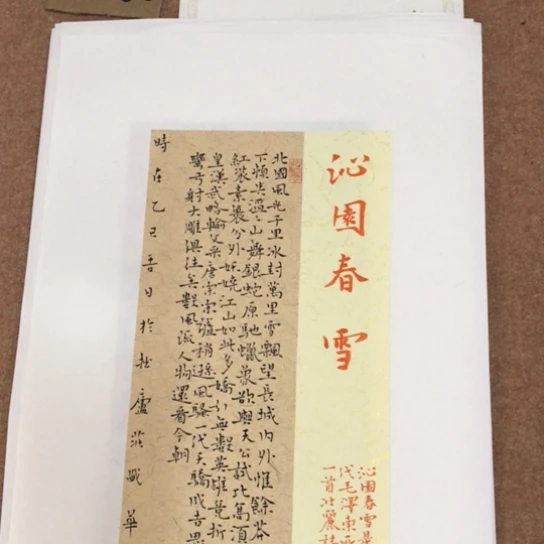 沁園春雪
沁園春雪是
代毛澤東所
一首壯麗詩
北國風光千里冰封萬里雪飄望長城內外惟餘莽
下頓失滔:山舞銀蛇原馳蠟象欲與天公試比高須
紅裝素裹分外妖嬈江山如此多嬌引無數英雄竟折
皇漢武略輸文采唐宗宋祖稍遜風騷一代天驕成吉思
彎弓射大雕俱往矣數風流人物還看今朝
時在乙巳吾日於松廬華